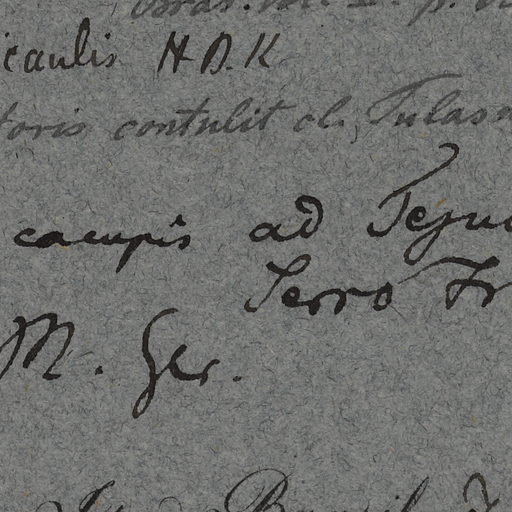 Bras. vol. 2. p.
icaulis H.B.K
toris contulit cl. Tulasn
cacupis ad Teju
Serro Fr
M. Ger.
Brasil